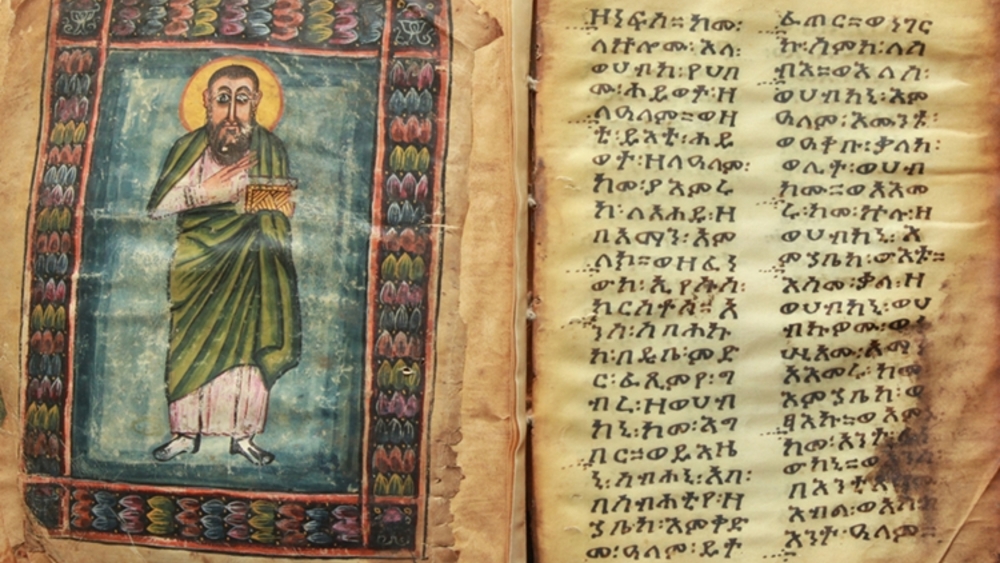 ዘነፍስ። ከመ፡
ለኵሎሙ፡ እለ፡
ወሀብከ፡ የሀበ
ሙ፡ ሕይወተ፡ ዘ
ለዓለም። ወዛ
ቲ፡ ይእቲ፡ ሕይ
ወት፡ ዘለዓለም፡
ከመ፡ ያእምሩ
ከ፡ ለአሐዱ፡ ዘ
በአማን፡ አም
ላክ። ወዘፈነ
ውከ፡ ኢየሱስ፡
ክርስቶስ። አ
ንሰ፡ ሰባሕኩ
ከ፡ በዲበ፡ ምድ
ር፡ ፈጺምየ፡ ግ
ብረ፡ ዘወሀብ
ከኒ፡ ከመ፡ እግ
በር። ወይእዜ
ኒ፡ ሰብሐኒ፡ አባ፡
በስብሐቲየ፡ ዘ
ኀቤከ፡ እምቅድ
መ፡ ዓለም፡ ይት
ፈጠር። ወነገር
ኩ፡ ስምከ፡ ለሰ
ብእ። ወእለሰ፡
ወሀብከኒ፡ እም
ዓለም፡ እሙንቱ፡
ወዓቀቡ፡ ቃለከ፡
ወሊተ፡ ወሀብ
ከሙ። ወአእመ
ሩ፡ ከመ፡ ኵሉ፡ ዘ
ወሀብከኒ፡ እ
ምኀቤከ፡ ውእቱ።
እስመ፡ ቃለ፡ ዘ
ወሀብከኒ፡ ወሀ
ብኩዎሙ፡
አእመሩ፡ ከመ፡
እምኀቤከ፡ ወ
ፃእኩ። ወአም
ከመ፡ አንተ፡
ውከኒ።
በእንቲአ
እብል፡ ወአኮ፡
እንተ፡ ዓለም።